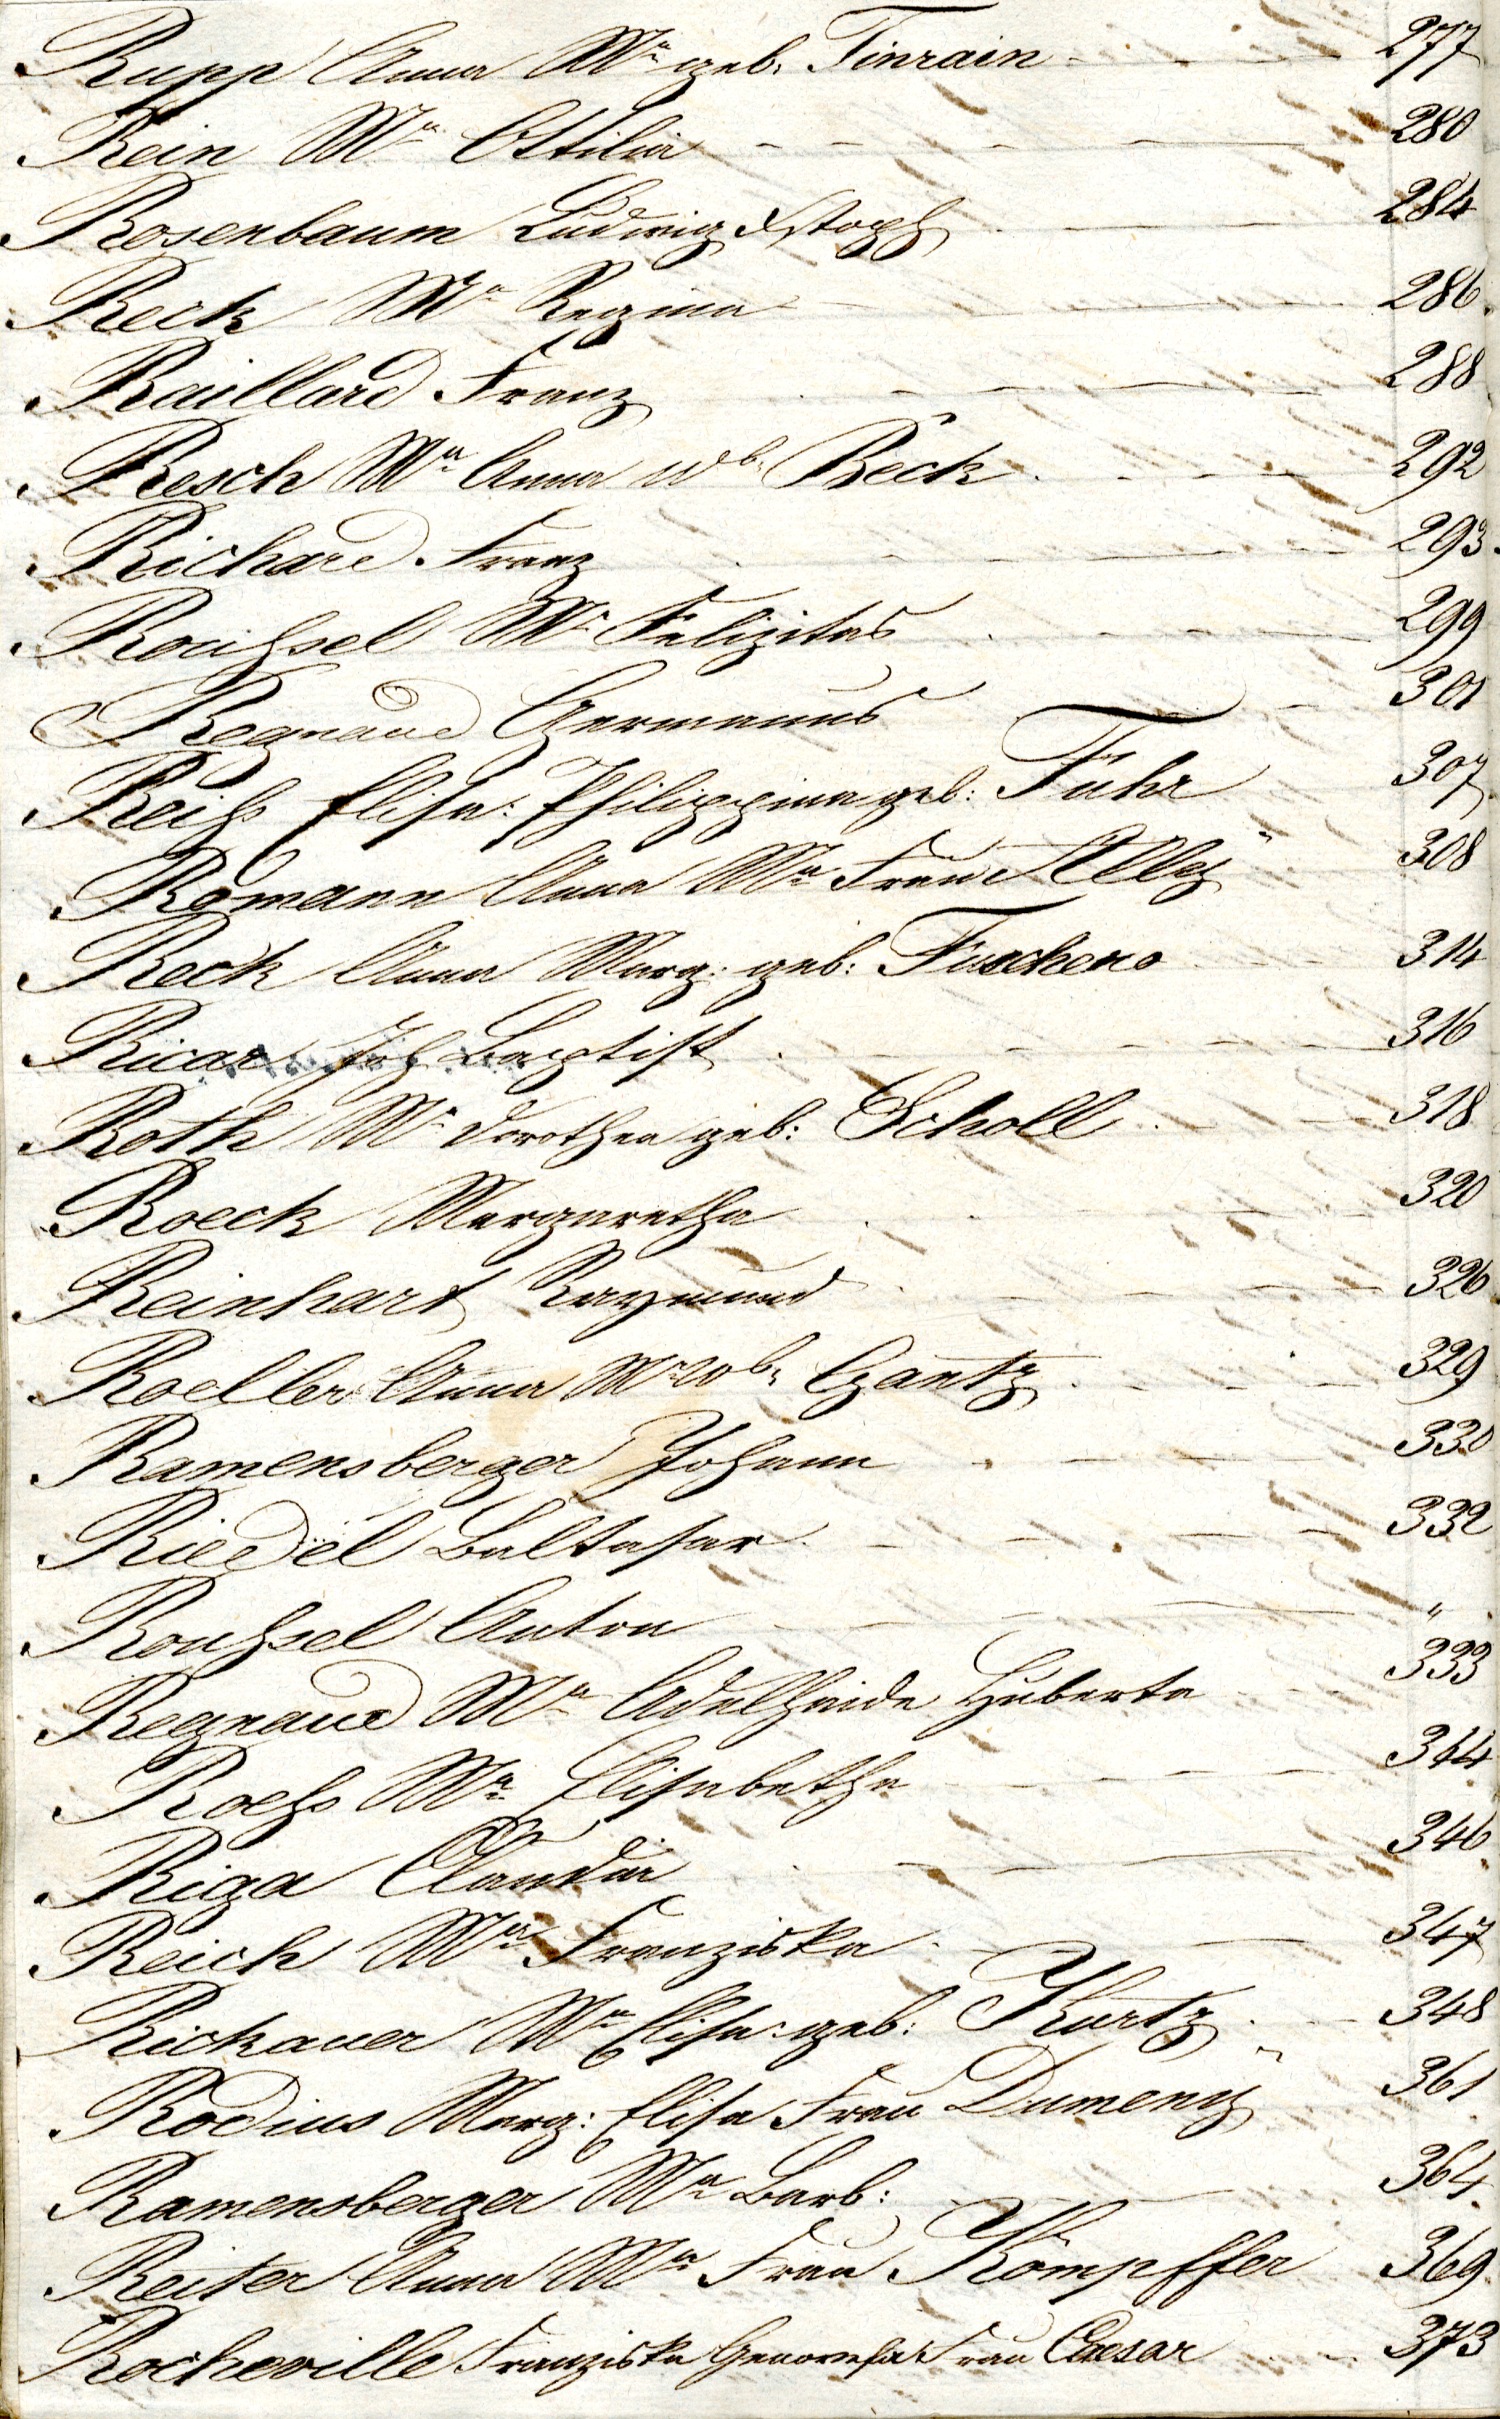 Rupp Anna Mᵃ geb. Tinrain 277
Rein Mᵃ Ottilia 280
Rosenbaum Ludwig Xstoph 284
Reck Mᵃ Regina 286.
Raillard Franz 288
Resch Mᵃ Anna Wb. Beck 292
Richard Franz 293.
Rouhsel Mᵃ Felizitas 299
Regnaud Germanus 301
Reihs Elisa: Philippina geb: Führ 307
Romann Anna Mᵃ Frau Alley 308
Reck Anna Marg: geb: Fuschens 314
Ricar Joh Baptist 316
Roth Mᵃ Dorothea geb: Scholl 318
Roeck Margaretha 320
Reinhart Raymund 326
Roeller Anna Mᵃ Wb. Gantz 329
Ramensberger Johann 330
Riedel Baltasar 332
Rouhsel Anton "
Regnaud Mᵃ Adelheide Huberta 333
Roehs Mᵃ Elisabetha 344
Riga Claudia 346
Reich Mᵃ Franziska 347
Rickauer Mᵃ Elisa: geb: Kurtz 348
Rodius Marg: Elisa Frau Dumeny 361
Ramensberger Mᵃ Barb: 364.
Reiter Anna Mᵃ Frau Kömpffer 369.
Rocheville Franziska Genovefa Frau Caesar 373